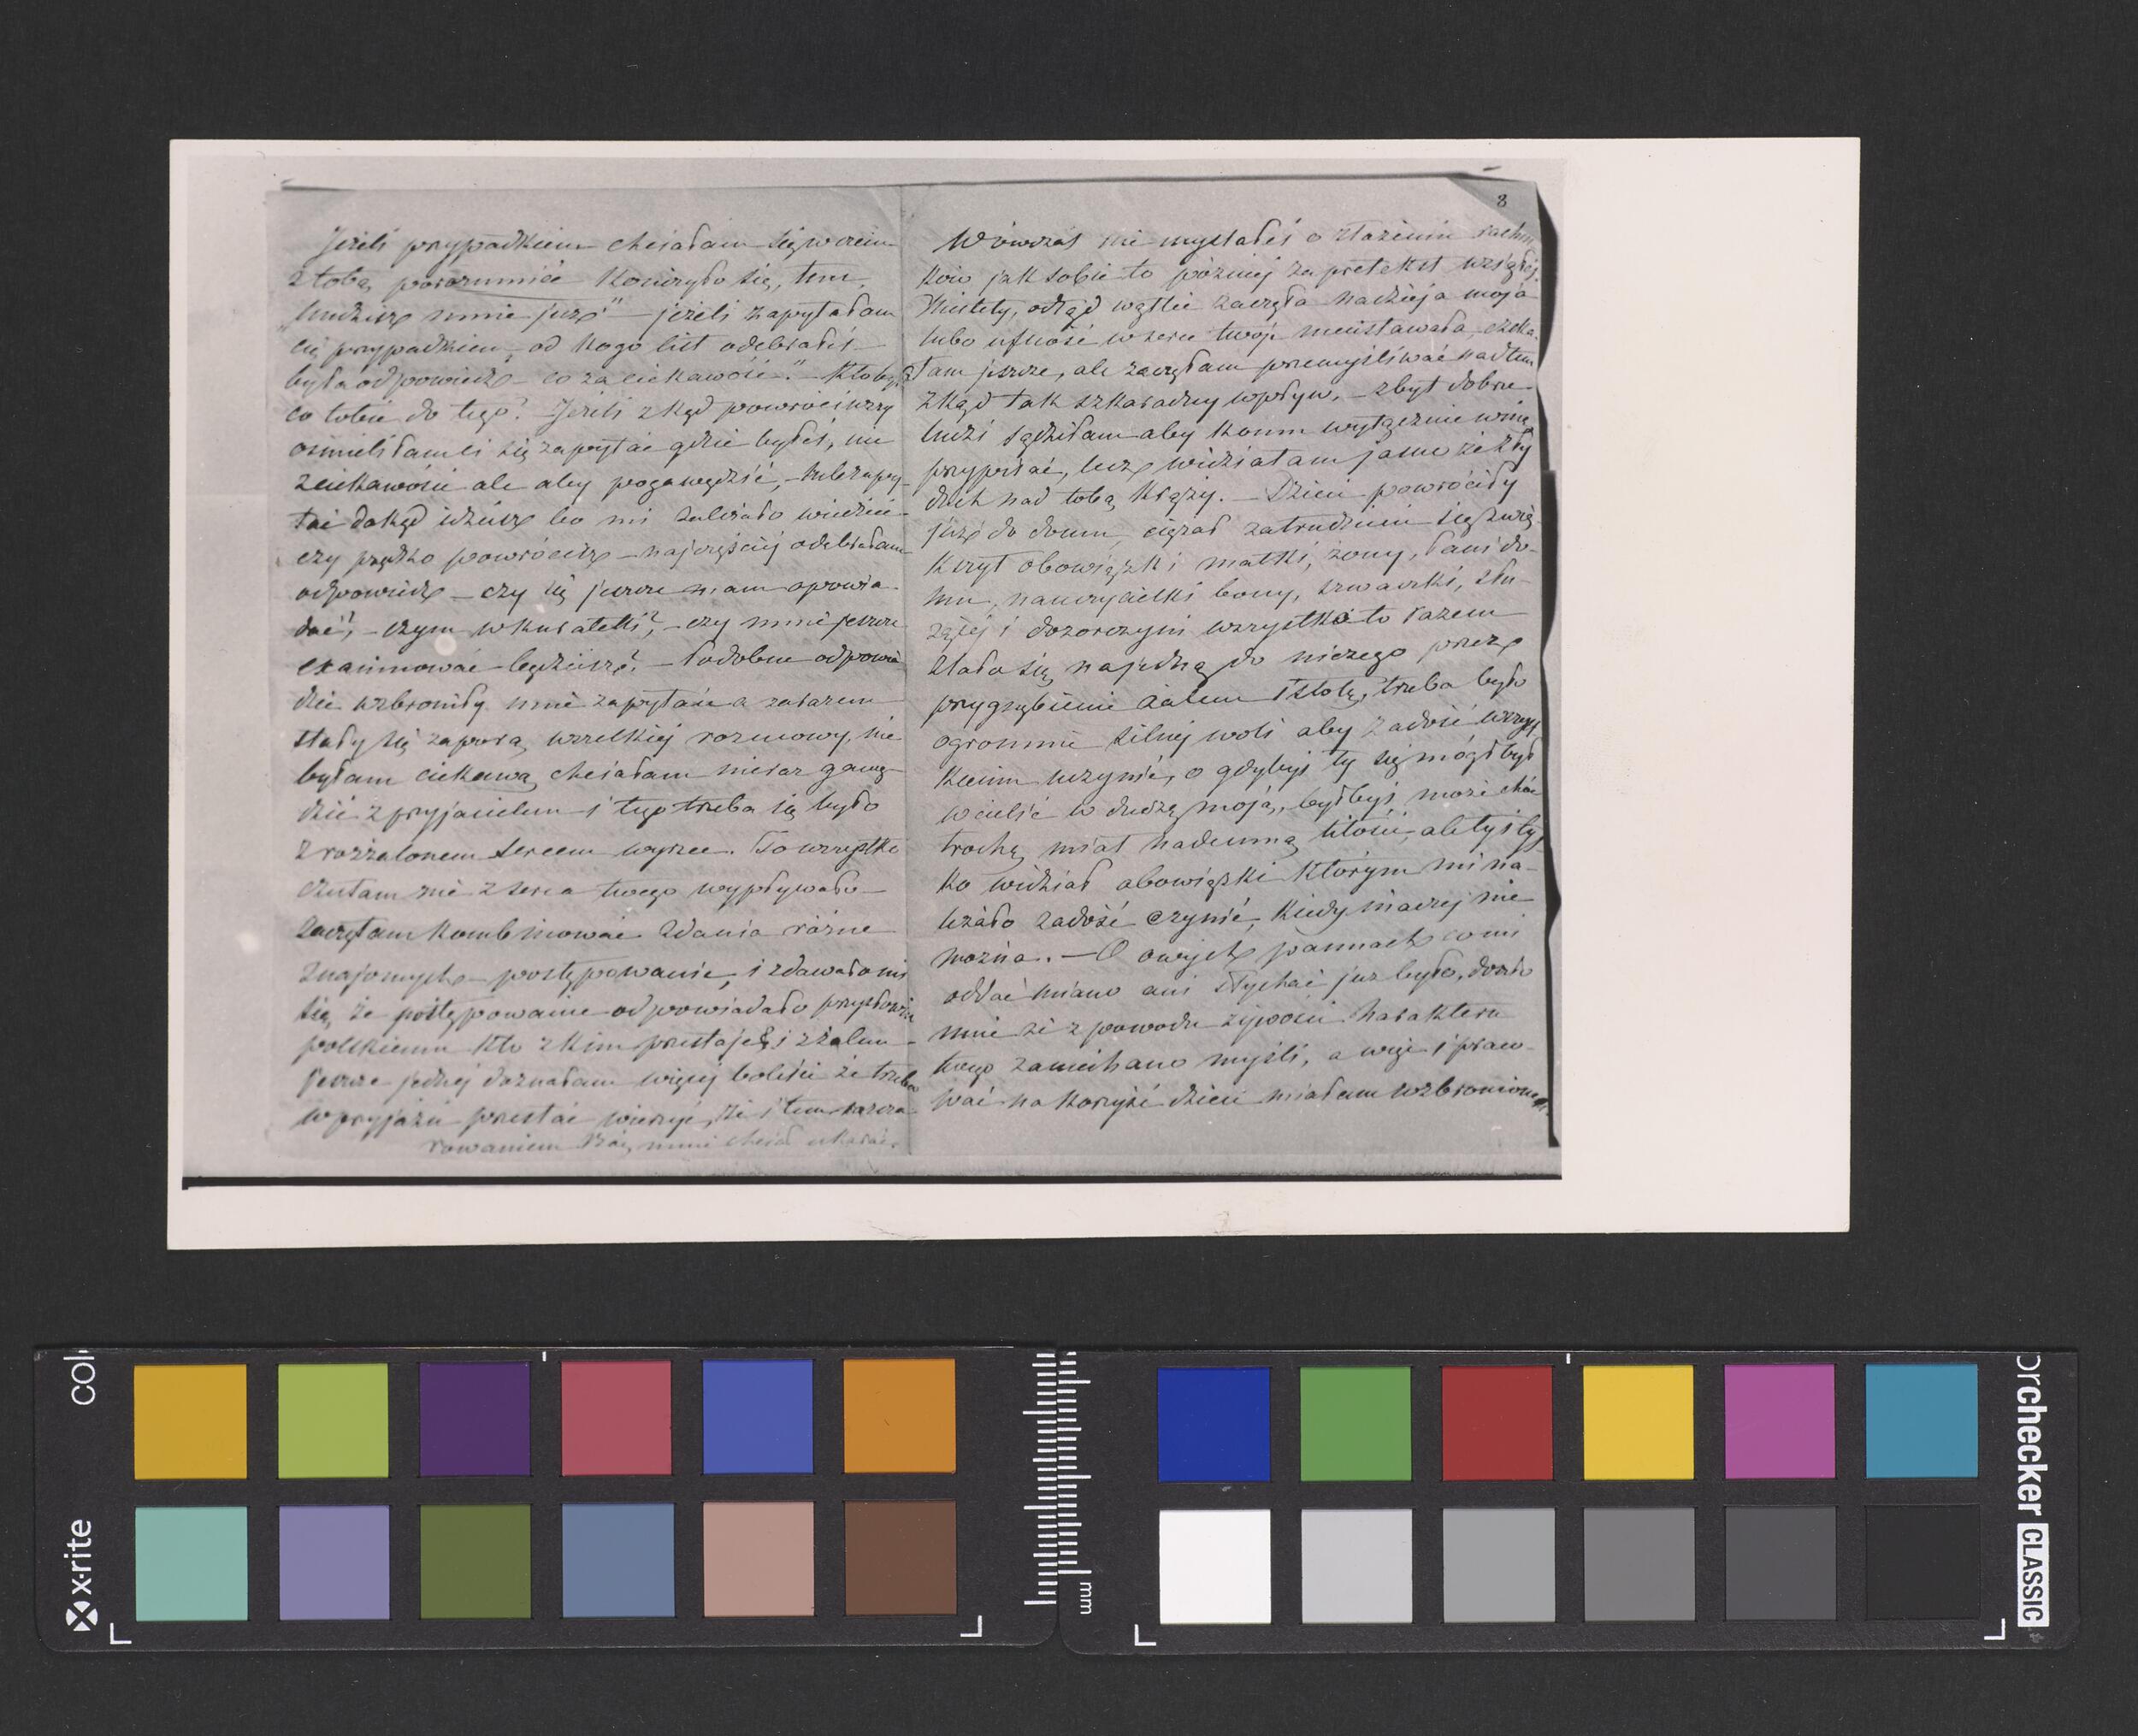 Jeżeli przypadkiem chciałam się w czem
z tobą porozumieć kończyło się, tem,
„nudzisz mnie już" — jeżeli zapytałam
cię przypadkiem, od kogo list odebrałeś —
była odpowiedź — co za ciekawość." —
co tobie do tego? Jeżeli zkąd powróciwszy
ośmieliłam ci się zapytać gdzie byłeś, nie
z ciekawości ale aby pogawędzić, — lub zapy-
tać dokąd idziesz bo mi zależało wiedzieć
czy prędko powrócisz — najczęściej odebrałam
odpowiedź — czy się jeszcze mam opowia-
dać?, — czym w kurateli?, — czy mnie jeszcze
examinować będziesz? — Podobne odpowie
dzie wzbroniły mnie zapytań a zarazem
stały się zaporą wszelkiej rozmowy, nie
byłam ciekawą chciałam nieraz gawę-
dzić z przyjacielem i tego trzeba się było
z rozżalonem sercem wyrzec. To wszystko
czułam nie z serca twego wypływało —
Zaczęłam kombinować zdania różne
znajomych — postępowanie, i zdawało mi
się, że postępowanie odpowiadało przysłowiu
polskiemu kto z kim przestaje & i z żalem
jeszcze jednej doznałam więcej boleści że trzeba
w przyjaźń przestać wierzyć, że i tem rozcza-
rowaniem Bóg mnie chciał ukarać.
8
Wówczas nie myślałeś o złożeniu rachun
ków jak sobie to później za pretekst wziąłeś.
Niestety, odtąd wątleć zaczęła nadzieja moja
lubo ufność w serce twoje nieustawała, czeka-
łam jeszcze, ale zaczęłam przemyśliwać nad tem
zkąd tak szkaradny wpływ, — zbyt dobrze
ludzi sądziłam aby komu wyłącznie winę
przypisać, lecz widziałam jasno że zły
duch nad tobą krąży. — Dzieci powróciły
już do domu, ciężar zatrudnień się zwię-
kszył obowiązki matki, żony, Pani do-
mu, nauczycielki bony, szwaczki, słu-
żącej i dozorczyni wszystko to razem
zlało się na jedną do niczego przez
przygnębienie żalem istotę, trzeba było
ogromnie silnej woli aby zadość wszyst
kiemu uczynić, o gdybyś ty się mógł był
wcielić w duszę moją, byłbyś może choć
trochę miał nademną litości, ale tyś tyl
ko widział obowiązki którym mi na-
leżało zadość czynić, kiedy inaczej nie
można. — O owych pannach co mi
oddać miano ani słychać już było, doszło
mnie że z powodu żywości harakteru
twego zaniechano myśli, a więc i praco-
wać na korzyść dzieci miałam wzbronione